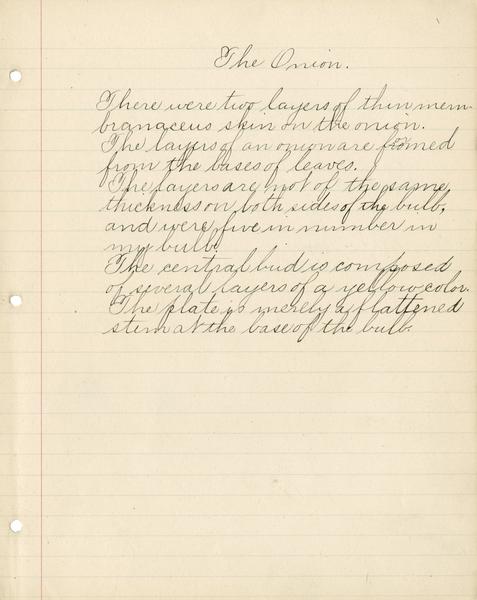 The Onion.
There were two layers of thin mem-
branaceus skin on the onion.
The layers of an onion are formed
from the bases of leaves.
The layers are not of the same
thickness on both sides of the bulb,
and were five in number in
my bulb.
The central bud is composed
of several layers of a yellow color.
The plate is merely a flattened
stem at the base of the bulb.